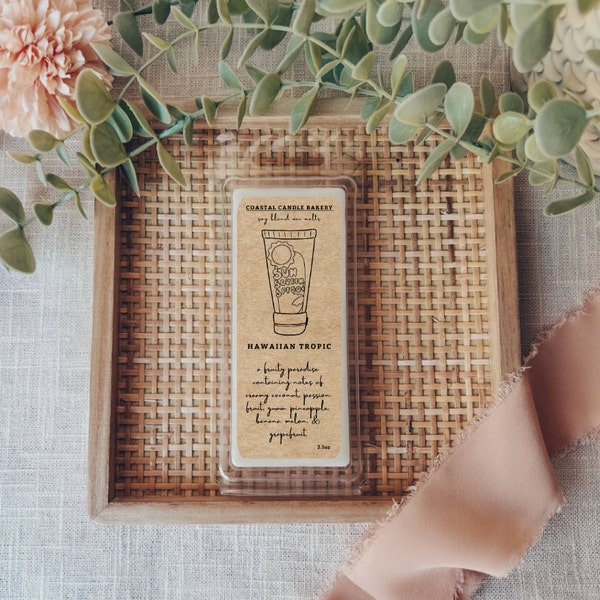 COASTAL CANDLE BAKERY
soy blend wax melts
SUN
SCREEN
SPF 50
HAWAIIAN TROPIC
a fruity paradise
containing notes of
creamy coconut, passion
fruit, guava, pineapple,
banana, melon, &
grapefruit.
2.5oz